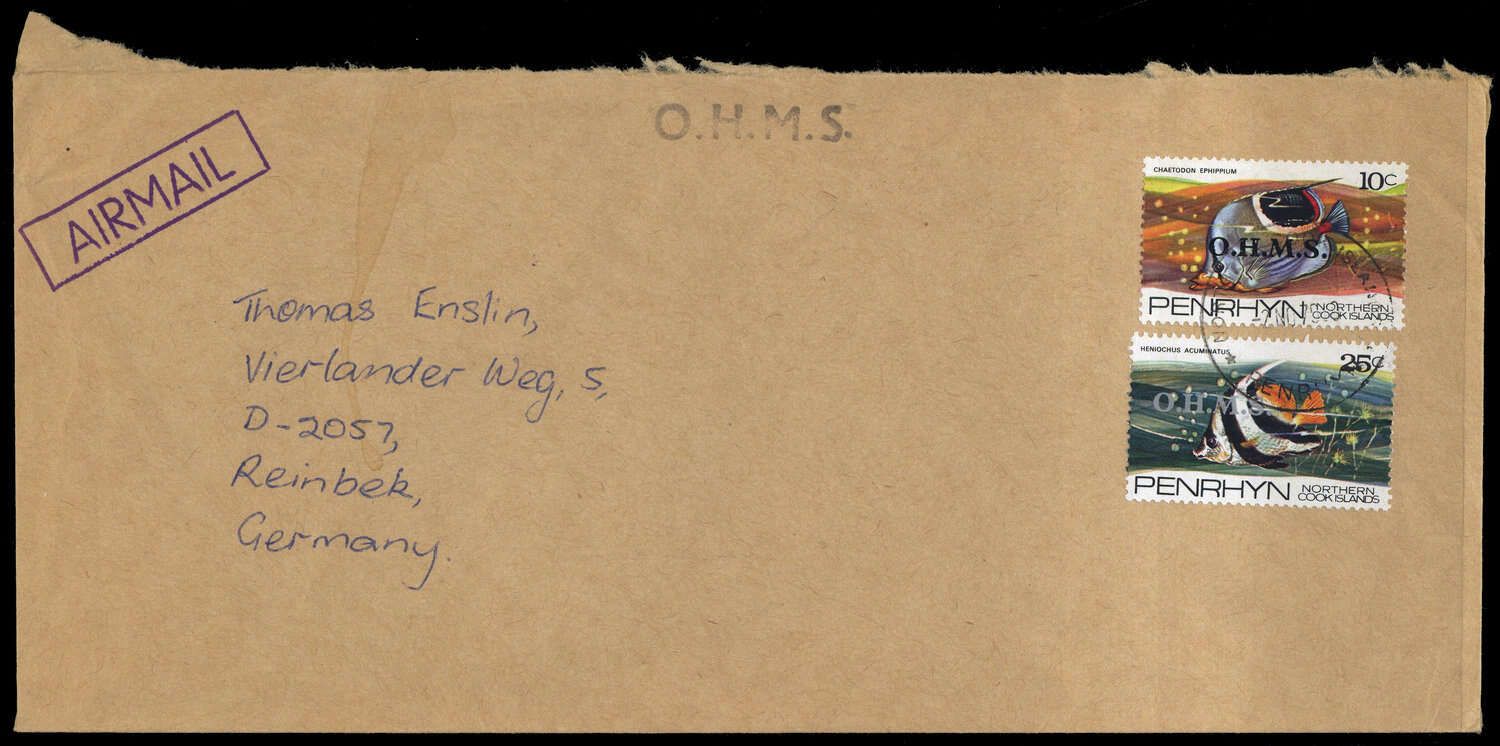 O.H.M.S.
AIRMAIL
CHAETODON EPHIPPIUM
10c
O.H.M.S.
PENRHYN NORTHERN
COOK ISLANDS
HENIOCHUS ACUMINATUS
25c
O.H.M.S.
PENRHYN NORTHERN
COOK ISLANDS
Thomas Enslin,
Vierlander Weg, 5,
D-2057,
Reinbek,
Germany.